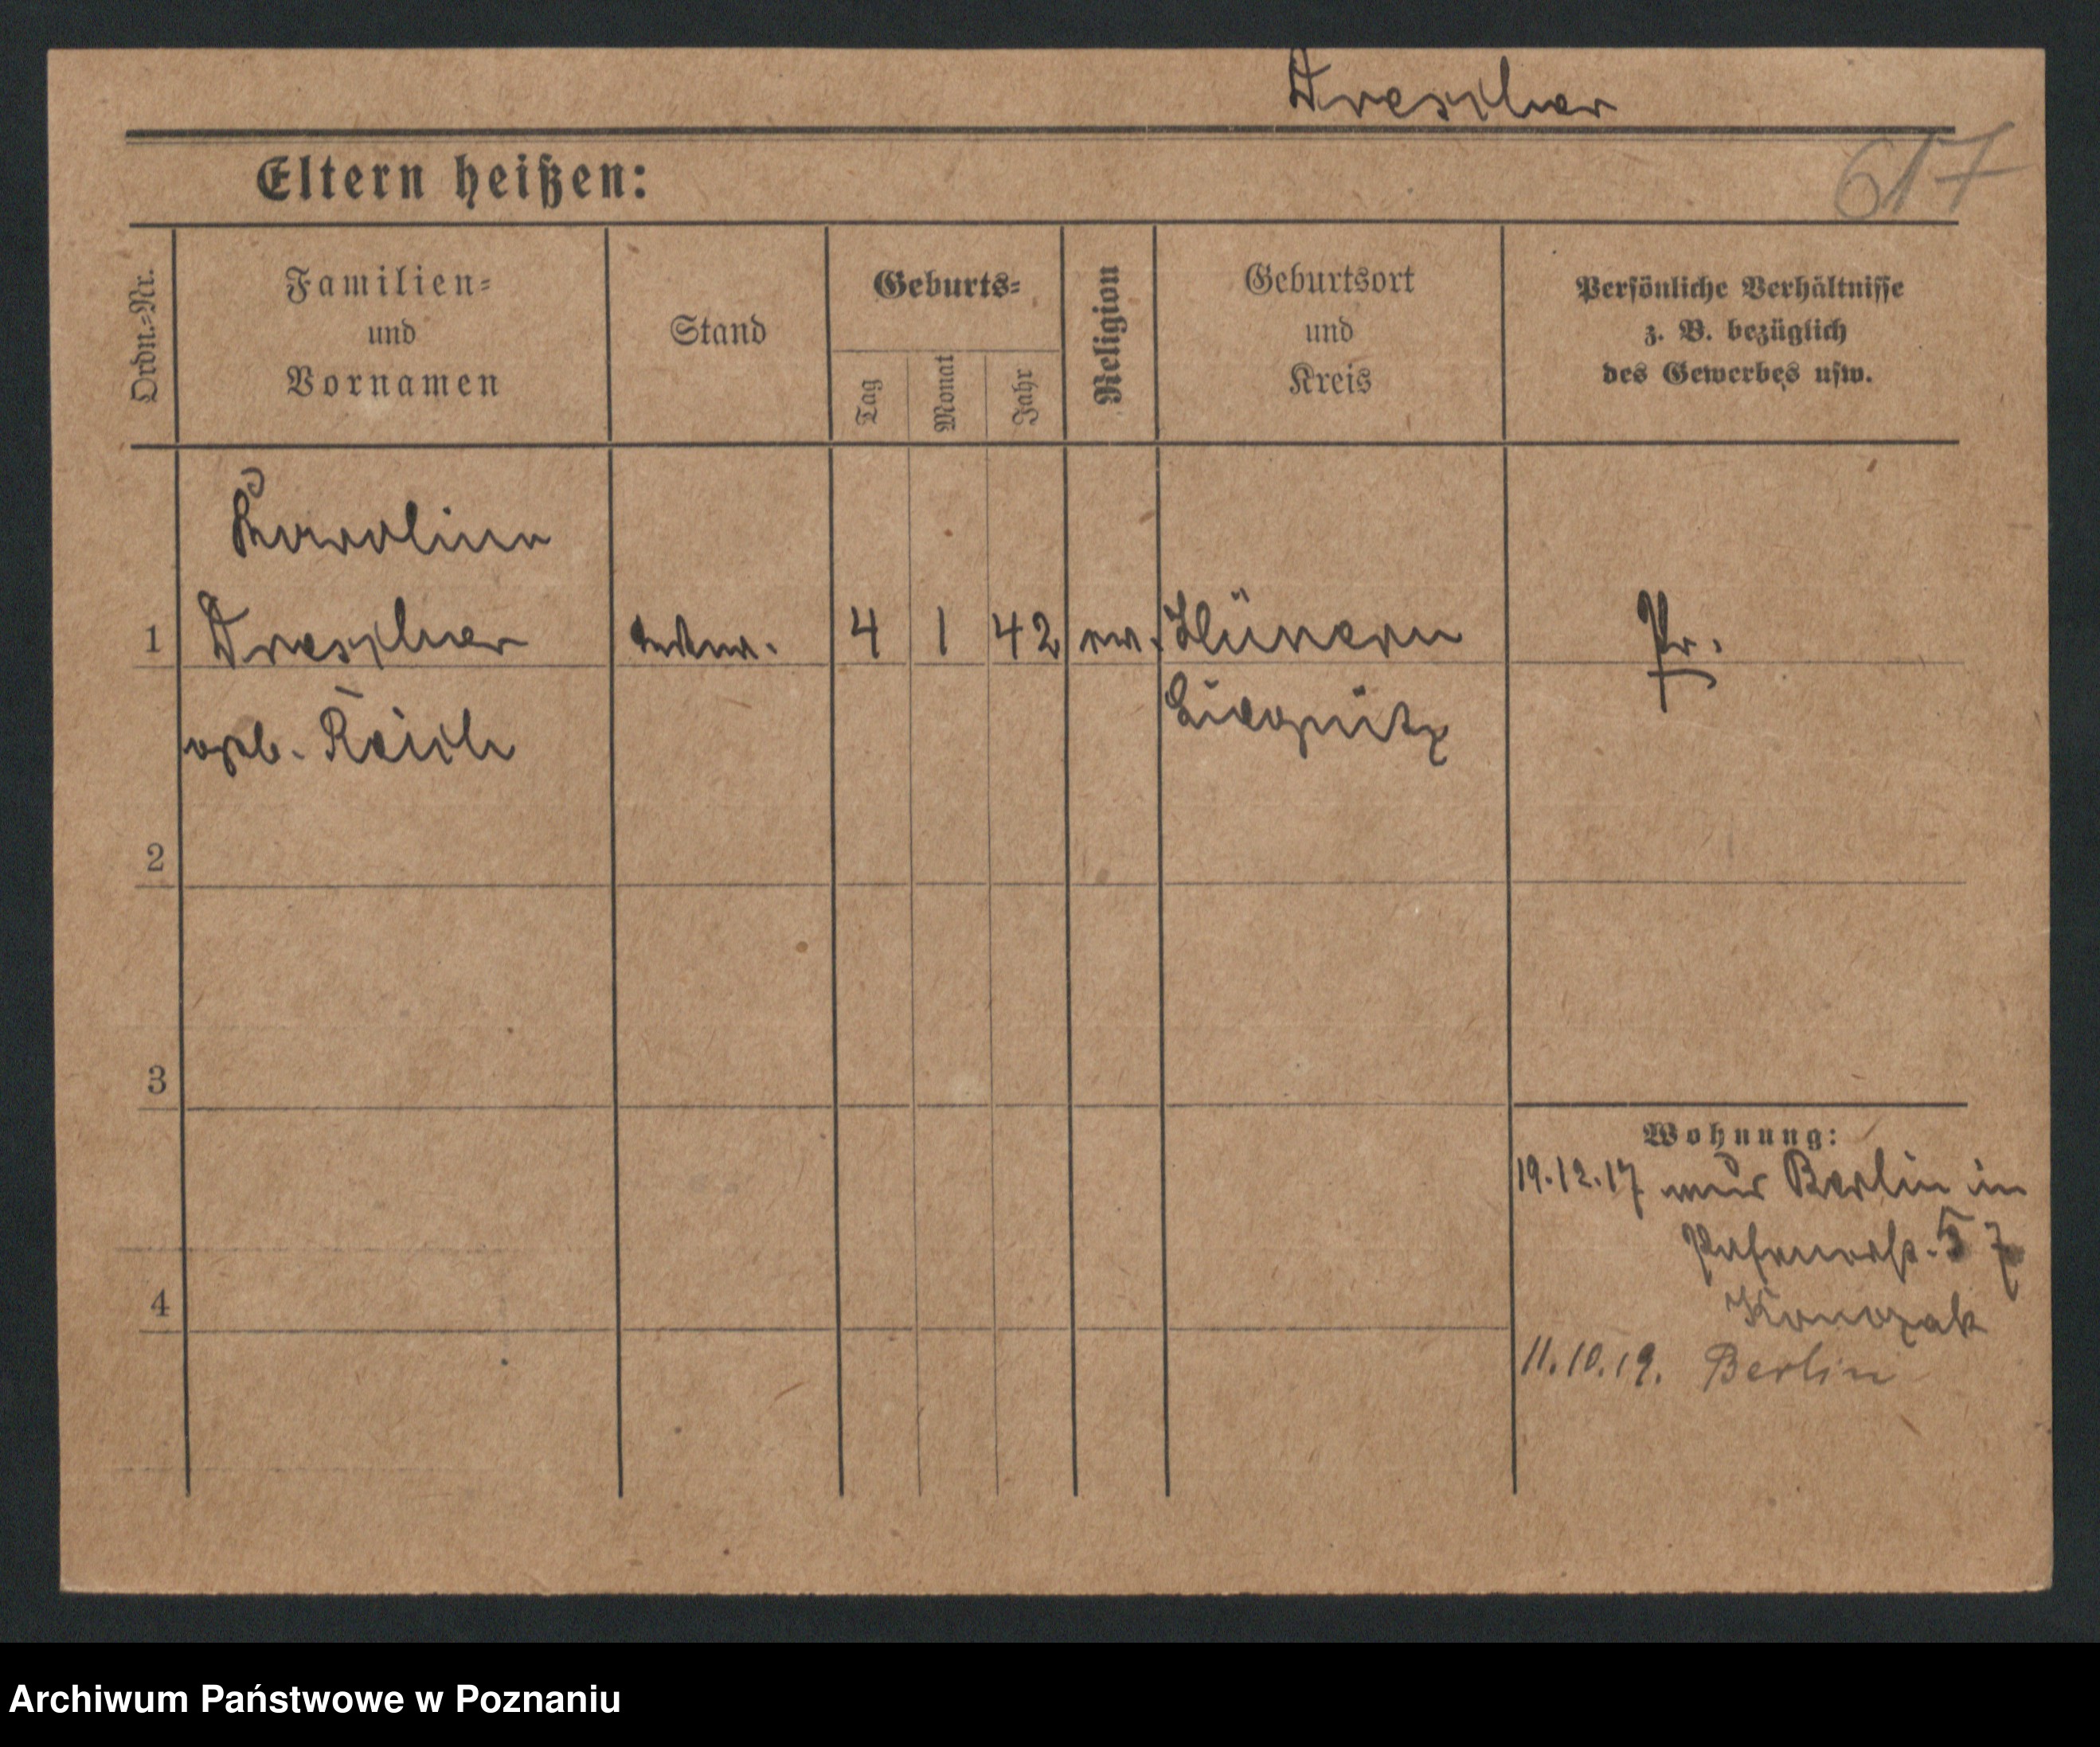 Drescher
617
Eltern heißen:
Ordn.-Nr.
Familien-
und
Vornamen
Stand
Geburts-
Tag
Monat
Jahr
Religion
Geburtsort
und
Kreis
Persönliche Verhältnisse
z. B. bezüglich
des Gewerbes usw.
Karoline
1 Drescher 4 1 42 ev. Hünern Pr.
geb. Reich Liegnitz
2
3
4
Wohnung:
19.12.17 aus Berlin in
57
11.10.19. Berlin
Archiwum Państwowe w Poznaniu